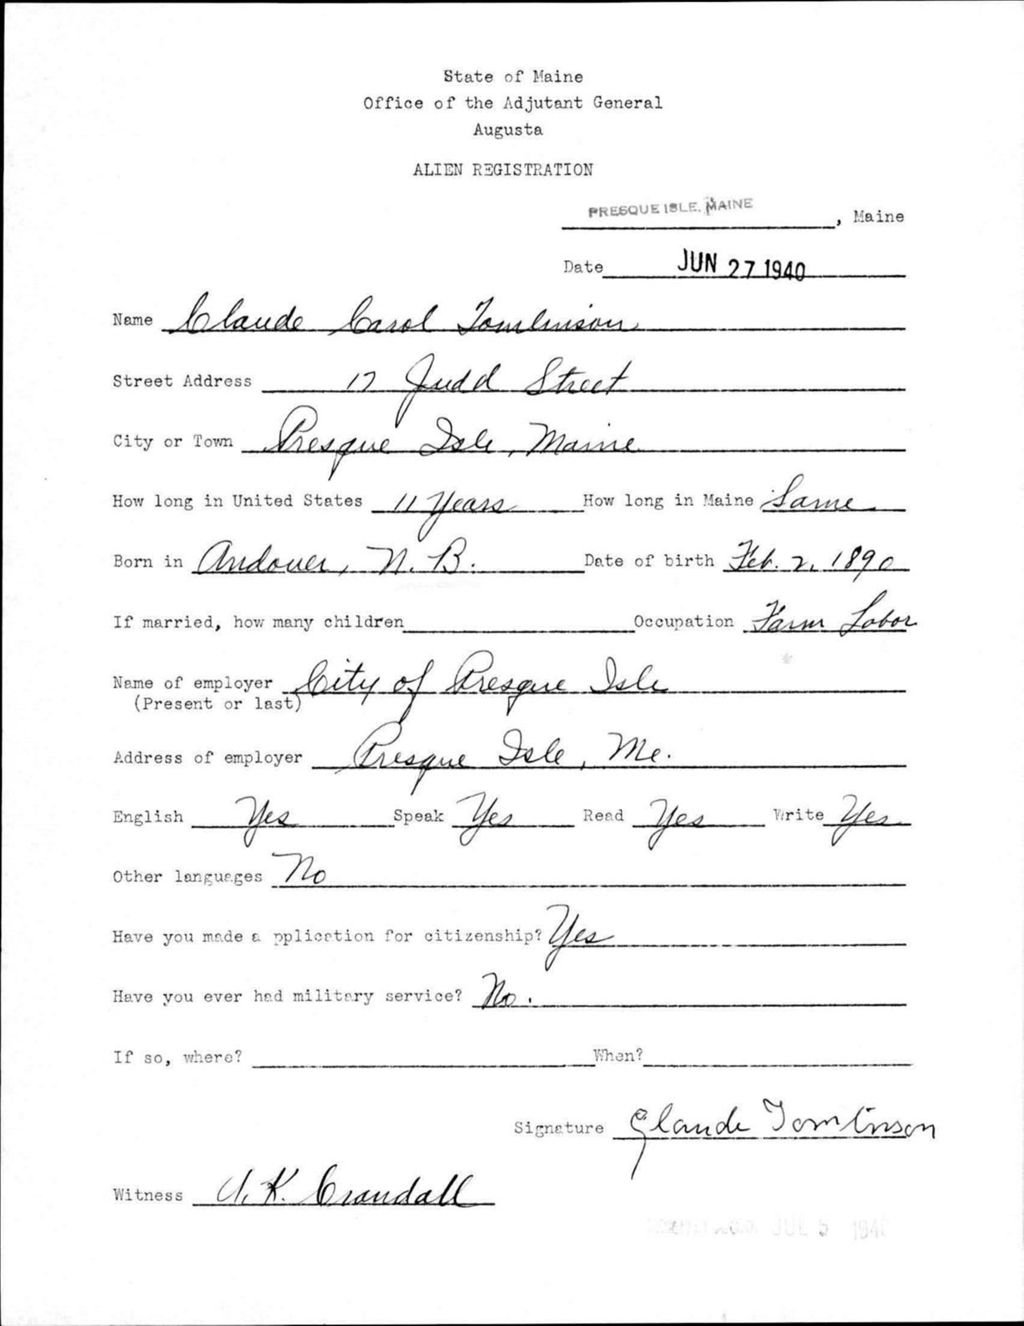 State of Maine
Office of the Adjutant General
Augusta
ALIEN REGISTRATION
PRESQUE ISLE, MAINE, Maine
Date JUN 27 1940
Name Claude Carol Tomlinson
Street Address 17 Judd Street
City or Town Presque Isle, Maine
How long in United States 11 Years How long in Maine Same
Born in Andover, N. B. Date of birth Feb. 2, 1890
If married, how many children Occupation Farm Labor
Name of employer City of Presque Isle
(Present or last)
Address of employer Presque Isle, Me.
English Yes Speak Yes Read Yes Write Yes
Other languages No
Have you made a pplication for citizenship? Yes
Have you ever had military service? No.
If so, where? When?
Signature Claude Tomlinson
Witness K. Crandall
JUL 5 1940